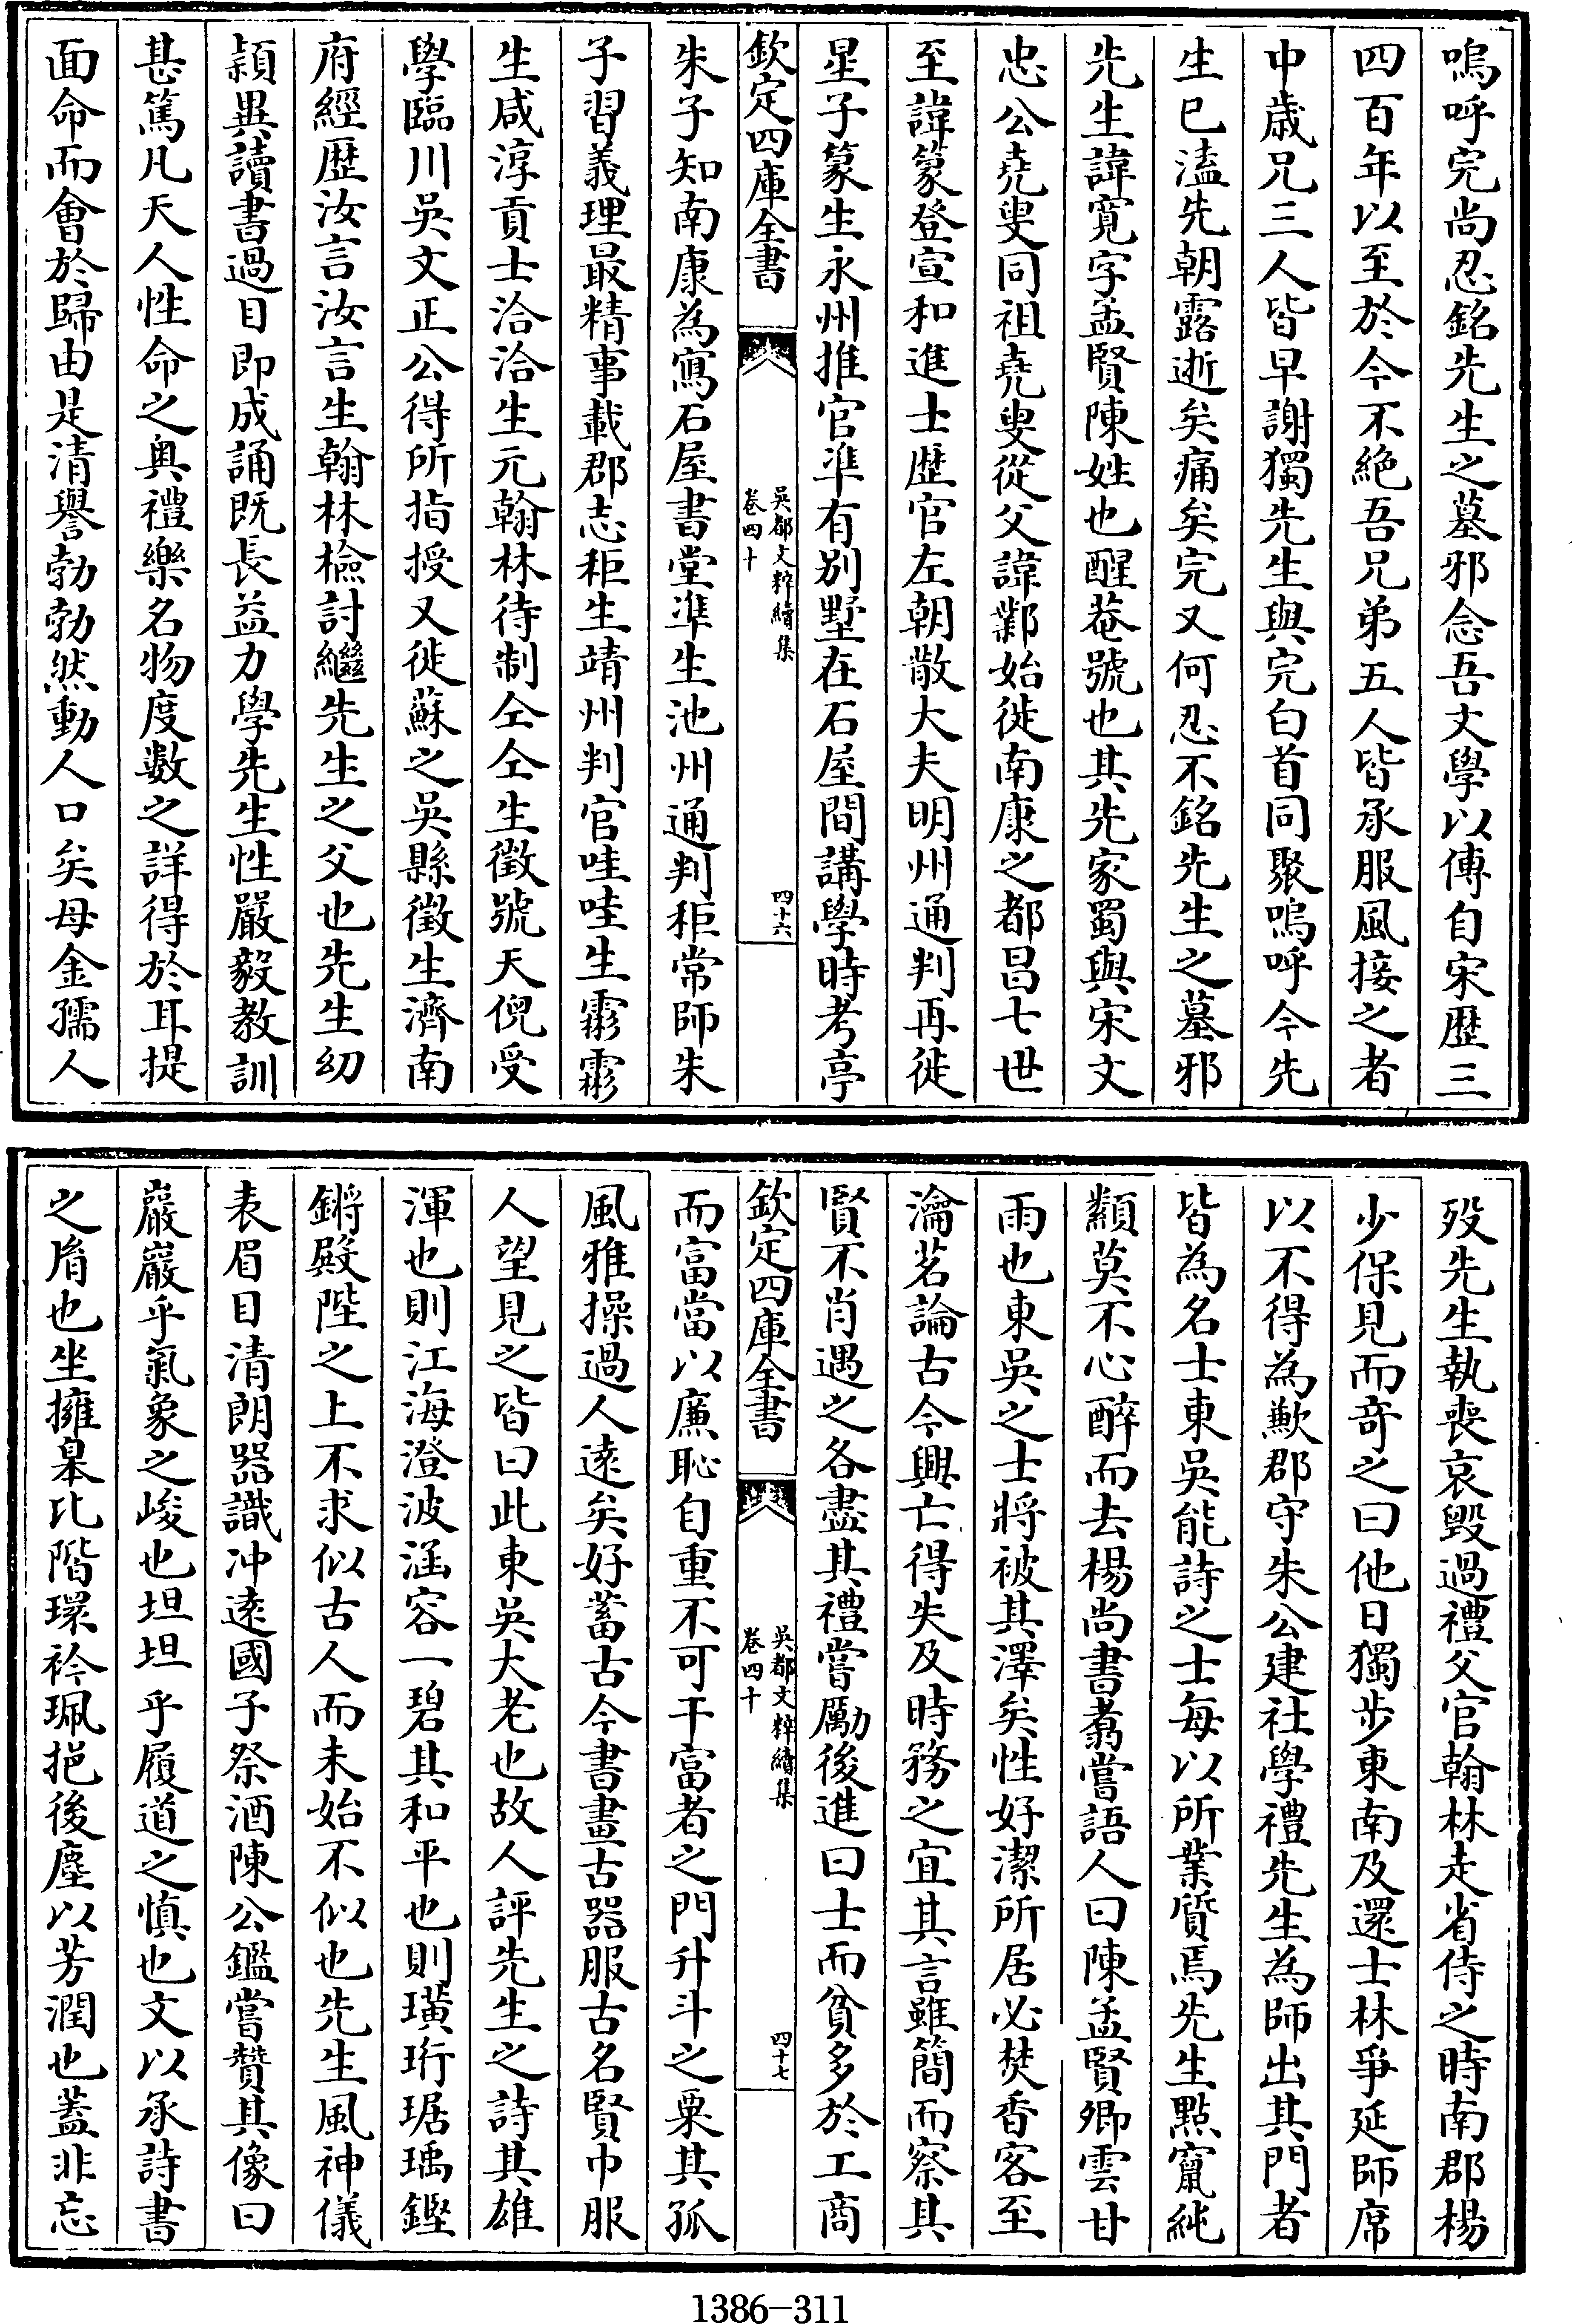 嗚呼完尚忍銘先生之墓邪念吾文學以傳自宋歴三
四百年以至於今不絶吾兄弟五人皆承服風接之者
中歳兄三人皆早謝獨先生與完白首同聚嗚呼今先
生已溘先朝露逝矣痛矣完又何忍不銘先生之墓邪
先生諱寛字孟賢陳姓也醒菴號也其先家蜀與宋文
忠公堯叟同祖堯叟從父諱鄴始徙南康之都昌七世
至諱篆登宣和進士歴官左朝散大夫明州通判再徙
星子篆生永州推官凖有别墅在石屋間講學時考亭
欽定四庫全書
吳都文粹續集
卷四十
四十六
朱子知南康為寫石屋書堂凖生池州通判秬常師朱
子習義理最精事載郡志秬生靖州判官哇哇生霦霦
生咸淳貢士洽洽生元翰林待制仝仝生徴號天倪受
學臨川吳文正公得所指授又徙蘇之吳縣徴生濟南
府經歴汝言汝言生翰林檢討繼先生之父也先生幼
穎異讀書過目即成誦既長益力學先生性嚴毅教訓
甚篤凡天人性命之奥禮樂名物度數之詳得於耳提
面命而會於歸由是清譽勃勃然動人口矣母金孺人
殁先生執喪哀毁過禮父官翰林走省侍之時南郡楊
少保見而奇之曰他日獨步東南及還士林爭延師席
以不得為歉郡守朱公建社學禮先生為師出其門者
皆為名士東吳能詩之士每以所業質焉先生點竄純
纇莫不心醉而去楊尚書翥嘗語人曰陳孟賢卿雲甘
雨也東吳之士將被其澤矣性好潔所居必焚香客至
瀹茗論古今興亡得失及時務之宜其言雖簡而察其
賢不肖遇之各盡其禮嘗勵後進曰士而貧多於工商
欽定四庫全書
吳都文粹續集
卷四十
四十七
而富當以廉恥自重不可干富者之門升斗之粟其孤
風雅操過人逺矣好蓄古今書畫古器服古名賢巾服
人望見之皆曰此東吳大老也故人評先生之詩其雄
渾也則江海澄波涵容一碧其和平也則璜珩琚瑀鏗
鏘殿陛之上不求似古人而未始不似也先生風神儀
表眉目清朗器識冲逺國子祭酒陳公鑑嘗贊其像曰
嚴巖乎氣象之峻也坦坦乎履道之慎也文以承詩書
之胄也坐擁臯比階環衿珮挹後塵以芳潤也蓋非忘
1386-311